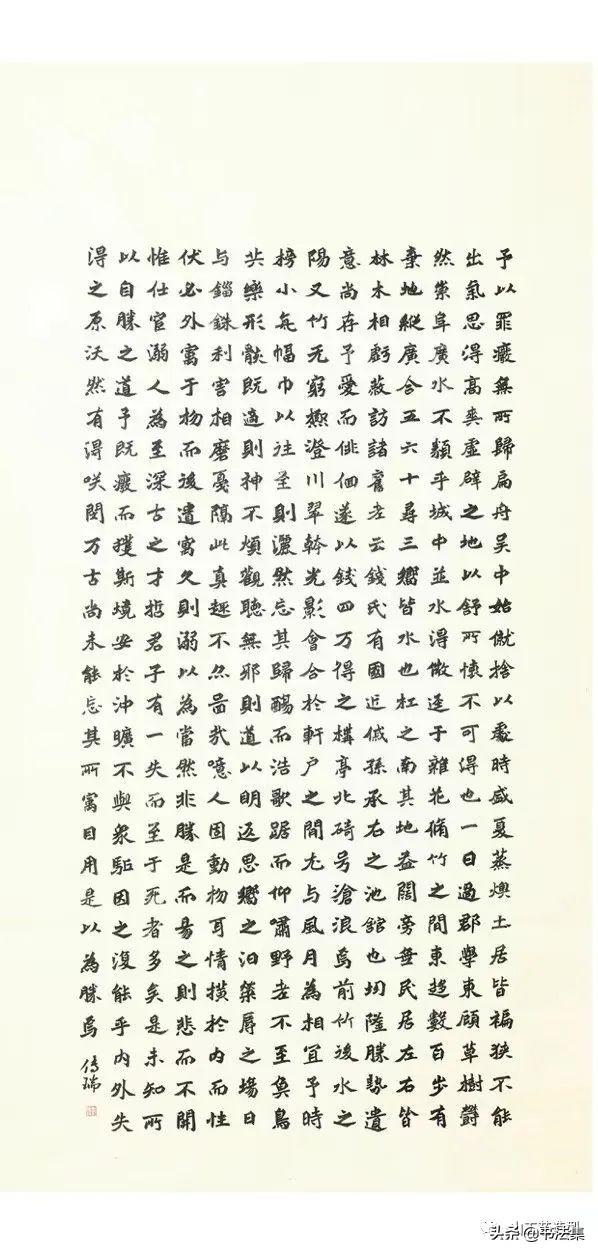 予以罪癈無所歸扁舟吳中始僦捨以處時盛夏蒸燠土居皆褊狹不能
出氣思得高爽虛辟之地以舒所懷不可得也一日過郡學東顧草樹鬱
然崇阜廣水不類乎城中並水得微逕于雜花脩竹之間東趍數百步有
棄地縱廣合五六十尋三嚮皆水也杠之南其地益闊旁無民居左右皆
林木相虧蔽訪諸舊老云錢氏有國近戚孫承右之池館也坳隆勝勢遺
意尚存予愛而徘徊遂以錢四万得之構亭北碕号滄浪焉前竹後水之
陽又竹无窮極澄川翠榦光影會合於軒戶之間尤与風月為相宜予時
榜小舟幅巾以往至則灑然忘其歸觴而浩歌踞而仰嘯野老不至魚鳥
共樂形骸既適則神不煩觀聽無邪則道以明返思嚮之汩榮辱之場日
与錙銖利害相磨戛隔此真趣不亦鄙哉噫人固動物耳情橫於內而性
伏必外寓于物而後遣寓久則溺以為當然非勝是而易之則悲而不開
惟仕宦溺人為至深古之才哲君子有一失而至于死者多矣是未知所
以自勝之道予既癈而獲斯境安於沖曠不與衆驅因之復能乎內外失
得之原沃然有得咲閔万古尚未能忘其所寓目用是以為勝焉
傳瑞
头条@书法集